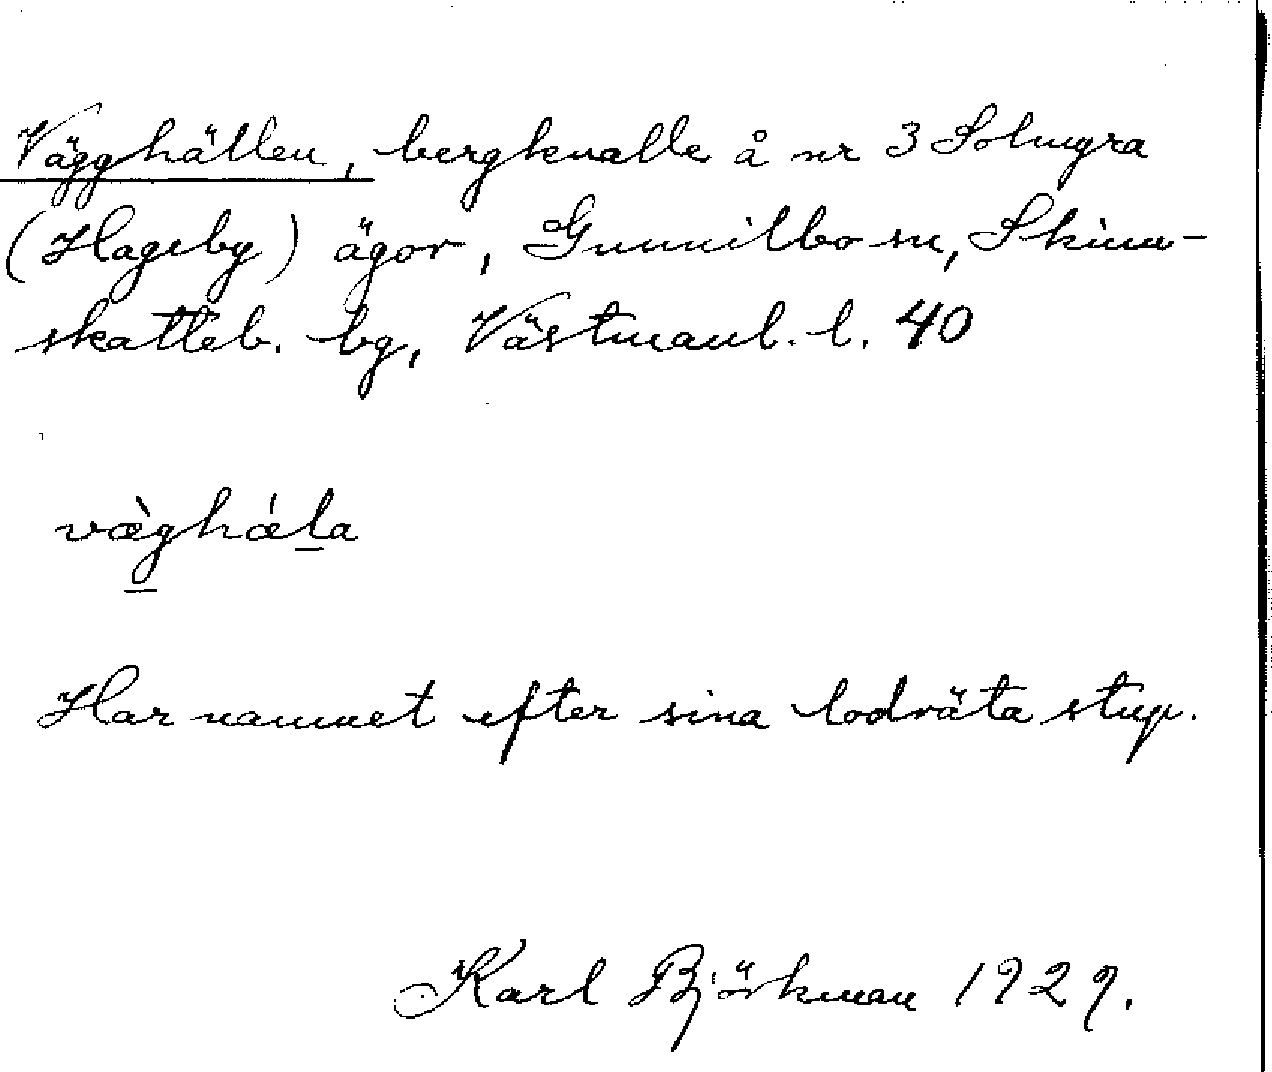 Vägghällen, bergknalle å nr 3 Solmyra
(Hageby) ägor, Gunnilbo sn, Skinn-
skatteb. bg, Västmanl. l. 40
væ̀ghǽla
Har namnet efter sina lodräta stup.
Karl Björkman 1929.